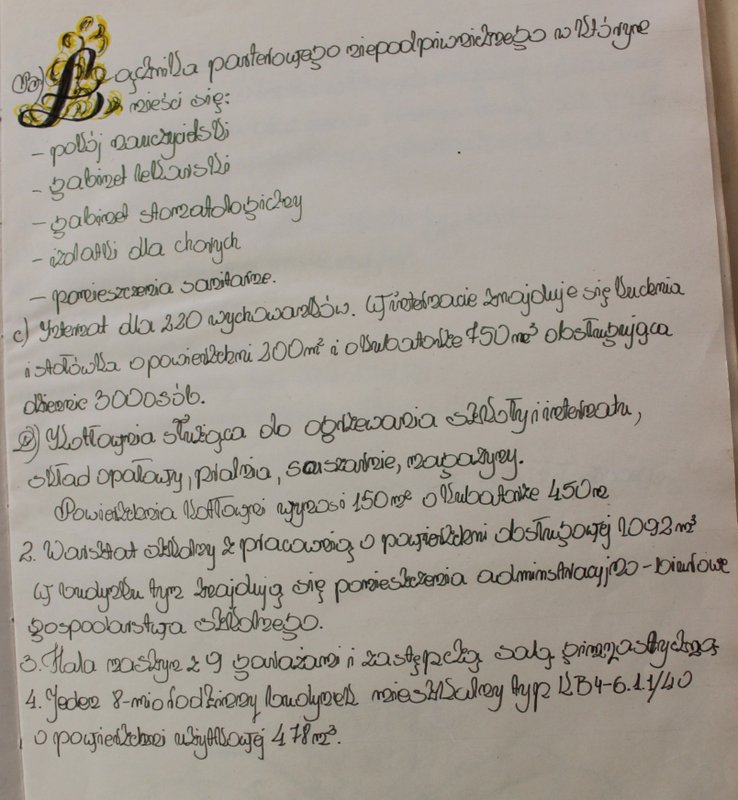 Ba) Łącznika parterowego niepodpiwniczonego w którym
mieści się:
- pokój nauczycielski
- gabinet lekarski
- gabinet stomatologiczny
- izolatki dla chorych
- pomieszczenia sanitarne.
c) Internat dla 220 wychowanków. W internacie znajduje się kuchnia
i stołówka o powierzchni 200m² i o kubaturze 750m³ obsługująca
dziennie 300 osób.
D) Kotłownia służąca do ogrzewania szkoły i internatu,
skład opałowy, pralnia, suszarnie, magazyny.
Powierzchnia kotłowni wynosi 150m² o kubaturze 450m
2. Warsztat szkolny z pracownią o powierzchni obsługowej 1092m³
W budynku tym znajdują się pomieszczenia adminstracyjno-biurowe
gospodarstwa szkolnego.
3. Hala maszyn z 9 garażami i zastępczą salą gimnastyczną
4. Jeden 8-mio rodzinny budynek mieszkalny typ KB4-6.1.1/40
o powierzchni użytkowej 478m³.